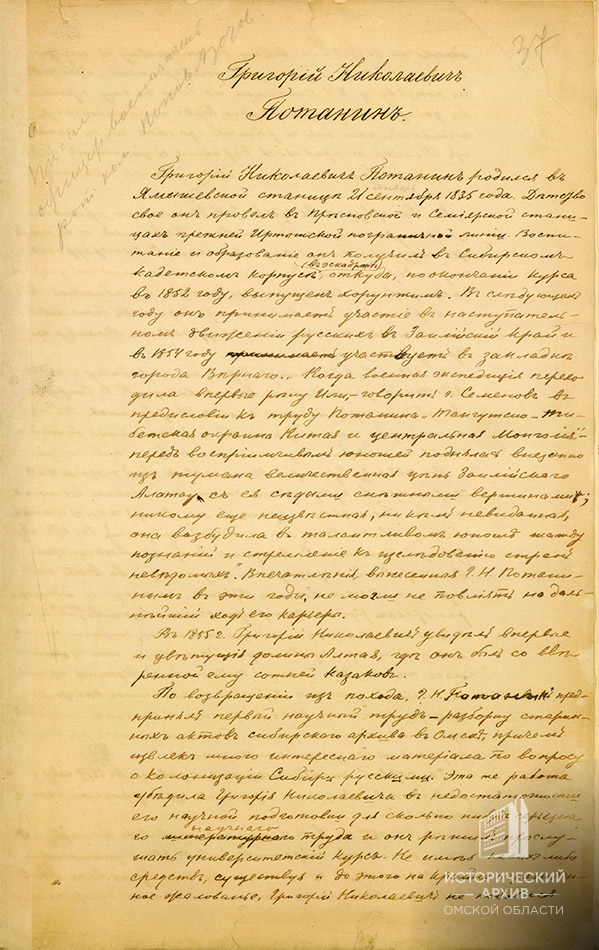 37
Писал
офицер воспитатель
Григорій Николаевичъ
Потанинъ.
Григорій Николаевичъ Потанинъ родился въ
Ямышевской станицѣ 21 сентября 1835 года. Дѣтство
свое онъ провелъ въ Прѣсновской и Семіярской стани-
цахъ прежней Иртышской пограничной линіи. Воспи-
таніе и образованіе онъ получилъ въ Сибирскомъ
(въ эскадронѣ)
кадетскомъ корпусѣ, откуда, по окончаніи курса
въ 1852 году, выпущенъ хорунжимъ. Въ слѣдующемъ
году онъ принимаетъ участіе въ наступатель-
номъ движеніи русскихъ въ Заилійскій край и
въ 1854 году принимаетъ участвуетъ въ закладкѣ
города Вѣрнаго. „Когда военная экспедиція перехо-
дила впервые рѣку Или, – говоритъ г. Семеновъ въ
предисловіи къ труду Потанина „Тангутско-Ти-
бетская окраина Китая и центральная Монголія“, –
передъ воспріимчивымъ юношей поднялась внезапно
изъ тумана величественная цѣпь Заилійскаго
Алатау, съ ея сѣдыми снѣжными вершинами;
никому еще неизвѣстная, никѣмъ невиданная,
она возбудила въ талантливомъ юношѣ жажду
познаній и стремленіе къ изслѣдованію странъ
невѣдомыхъ“. Впечатлѣнія вынесенныя Г. Н. Потани-
нымъ въ эти годы, не могли не повліять на даль-
нѣйшій ходъ его карьеры.
Григорій Николаевичъ увидѣлъ впервые
и цвѣтущія долины Алтая, гдѣ онъ былъ со ввѣ-
ренной ему сотней казаковъ.
По возвращеніи изъ похода, Г. Н. Потанинъ пред-
принялъ первый научный трудъ – разборку старин-
ныхъ актовъ сибирскаго архива въ Омскѣ, причемъ
извлекъ много интереснаго матеріала по вопросу
о колонизаціи Сибири русскими. Эта же работа
убѣдила Григорія Николаевича въ недостаточности
его научной подготовки для сколько нибудь
научнаго
го литературнаго труда и онъ рѣшилъ прослу-
шать университетскій курсъ. Не имѣя
средствъ, существуя и до этого на
ное жалованье, Григорій Николаевичъ не
ИСТОРИЧЕСКИЙ
АРХИВ
ОМСКОЙ ОБЛАСТИ